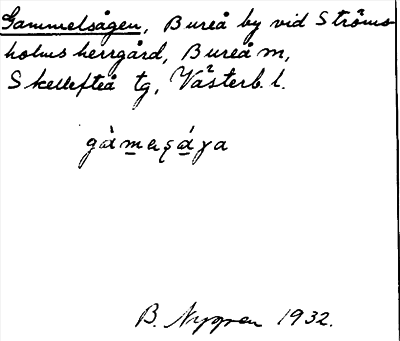 Gammelsågen, Bureå by vid Ströms-
holms herrgård, Bureå m,
Skellefteå tg, Västerb. l.
B. Nygren 1932.